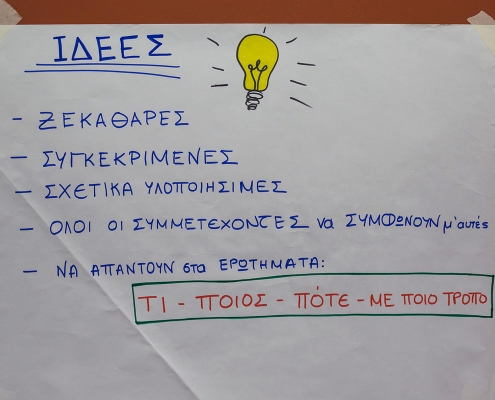 ΙΔΕΕΣ
- ΞΕΚΑΘΑΡΕΣ
- ΣΥΓΚΕΚΡΙΜΕΝΕΣ
- ΣΧΕΤΙΚΑ ΥΛΟΠΟΙΗΣΙΜΕΣ
- ΟΛΟΙ ΟΙ ΣΥΜΜΕΤΕΧΟΝΤΕΣ να ΣΥΜΦΩΝΟΥΝ μ'αυτές
- ΝΑ ΑΠΑΝΤΟΥΝ στα ΕΡΩΤΗΜΑΤΑ:
ΤΙ - ΠΟΙΟΣ - ΠΟΤΕ - ΜΕ ΠΟΙΟ ΤΡΟΠΟ